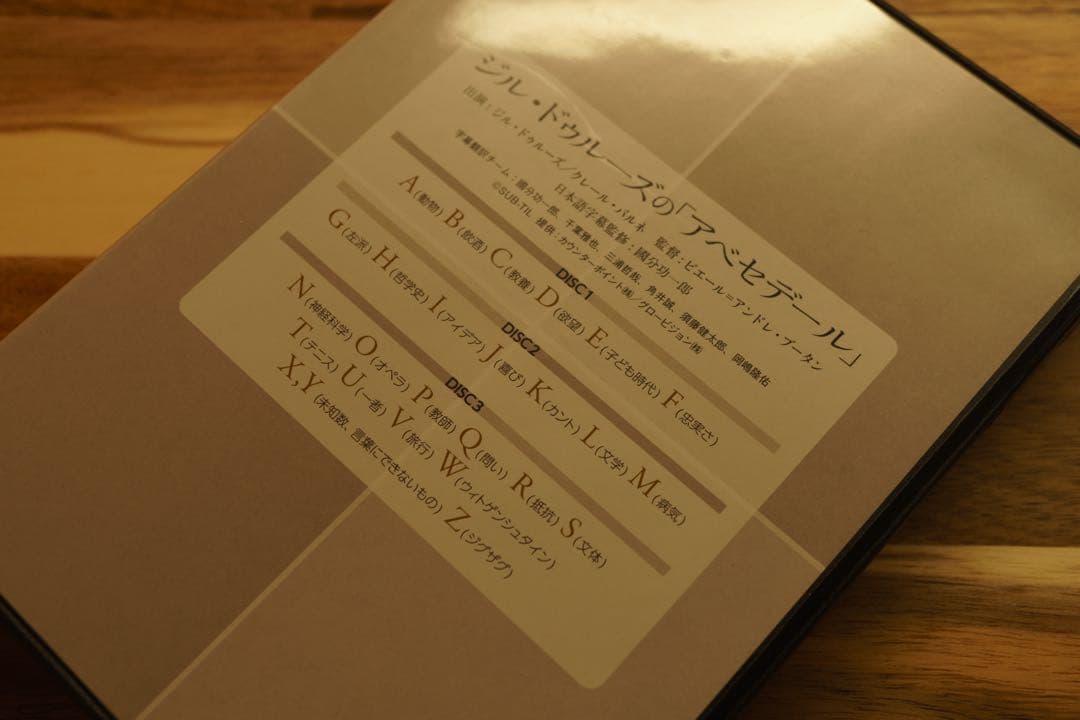 ジル・ドゥルーズの「アベセデール」
出演：ジル・ドゥルーズ／クレール・パルネ 監督：ピエール＝アンドレ・ブータン
日本語字幕監修：國分功一郎
字幕翻訳チーム：國分功一郎、千葉雅也、三浦哲哉、角井誠、須藤健太郎、岡嶋隆佑
©SUB-TIL 提供：カウンターポイント㈱／グロービジョン㈱
DISC1
A(動物) B(飲酒) C(教養) D(欲望) E(子ども時代) F(忠実さ)
DISC2
G(左派) H(哲学史) I(アイデア) J(喜び) K(カント) L(文学) M(病気)
DISC3
N(神経科学) O(オペラ) P(教師) Q(問い) R(抵抗) S(文体)
T(テニス) U(一者) V(旅行) W(ウィトゲンシュタイン)
X,Y(未知数、言葉にできないもの) Z(ジグザグ)